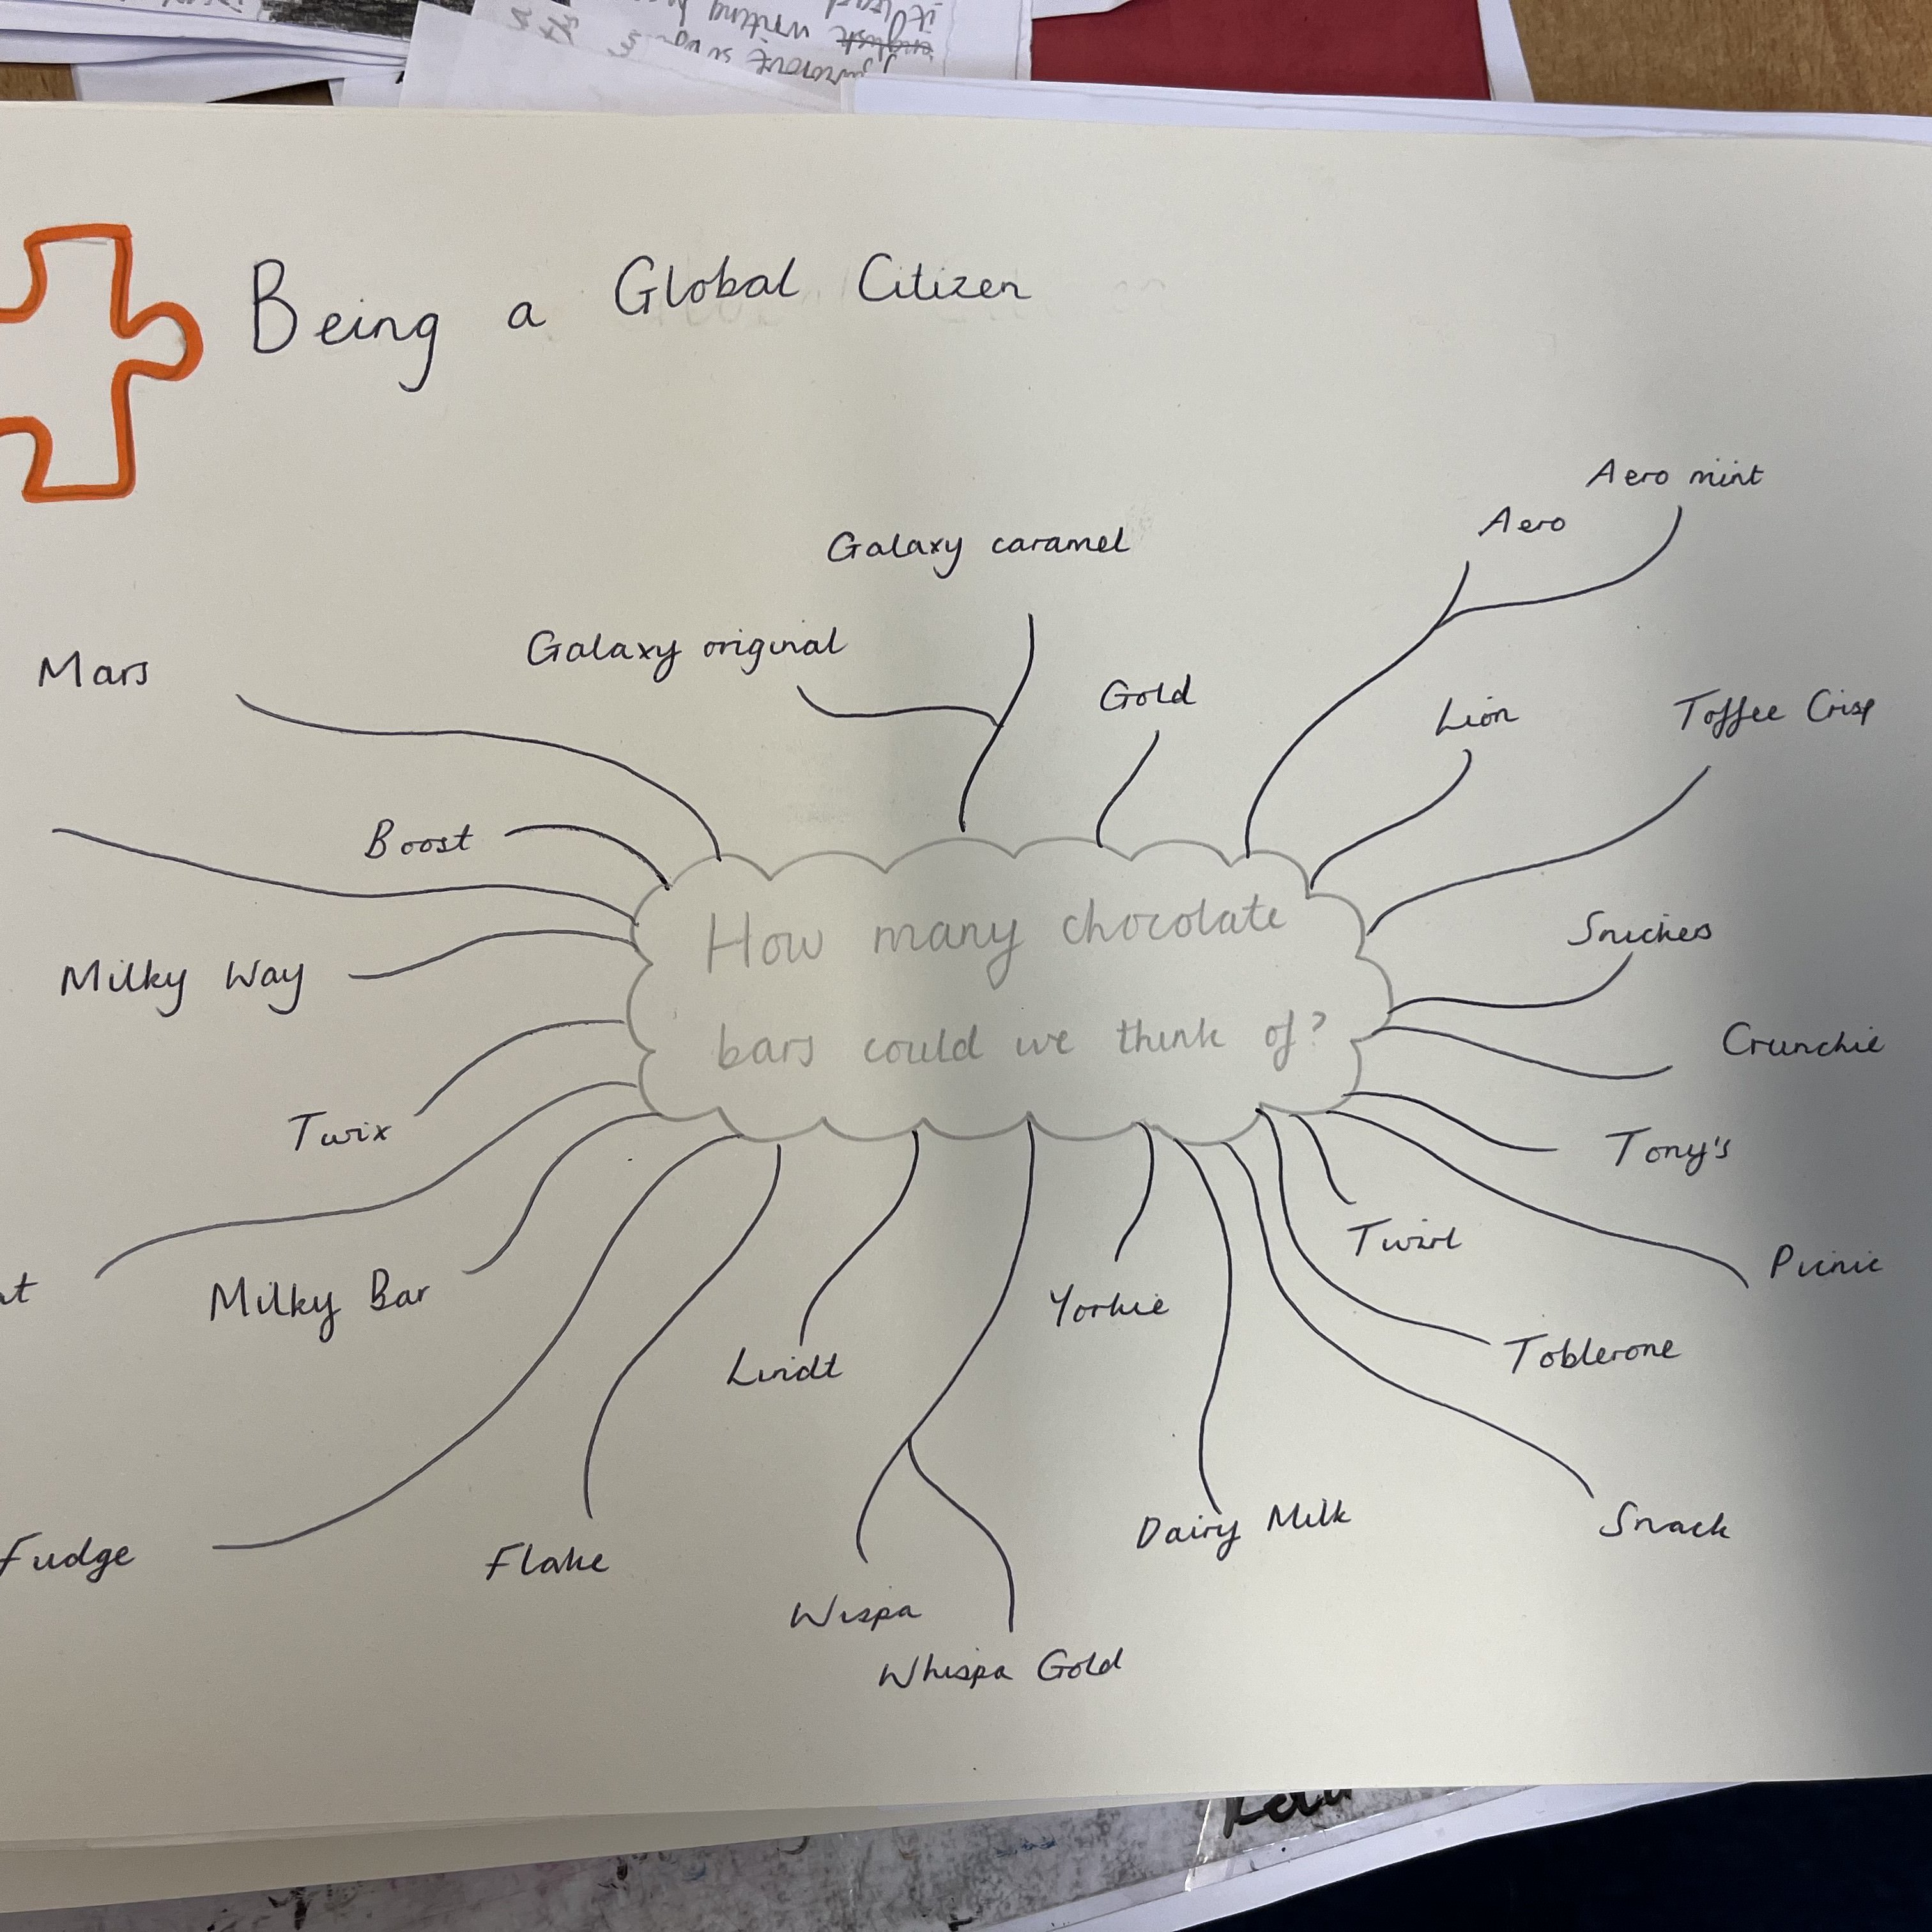 Being a Global Citizen
Aero mint
Aero
Galaxy caramel
Galaxy original
Mars
Gold
Lion
Toffee Crisp
Boost
How many chocolate
bars could we think of?
Snickers
Milky Way
Crunchie
Twix
Tony's
Twirl
Picnic
Milky Bar
Yorkie
Lindt
Toblerone
Dairy Milk
Snack
Fudge
Flake
Wispa
Whispa Gold